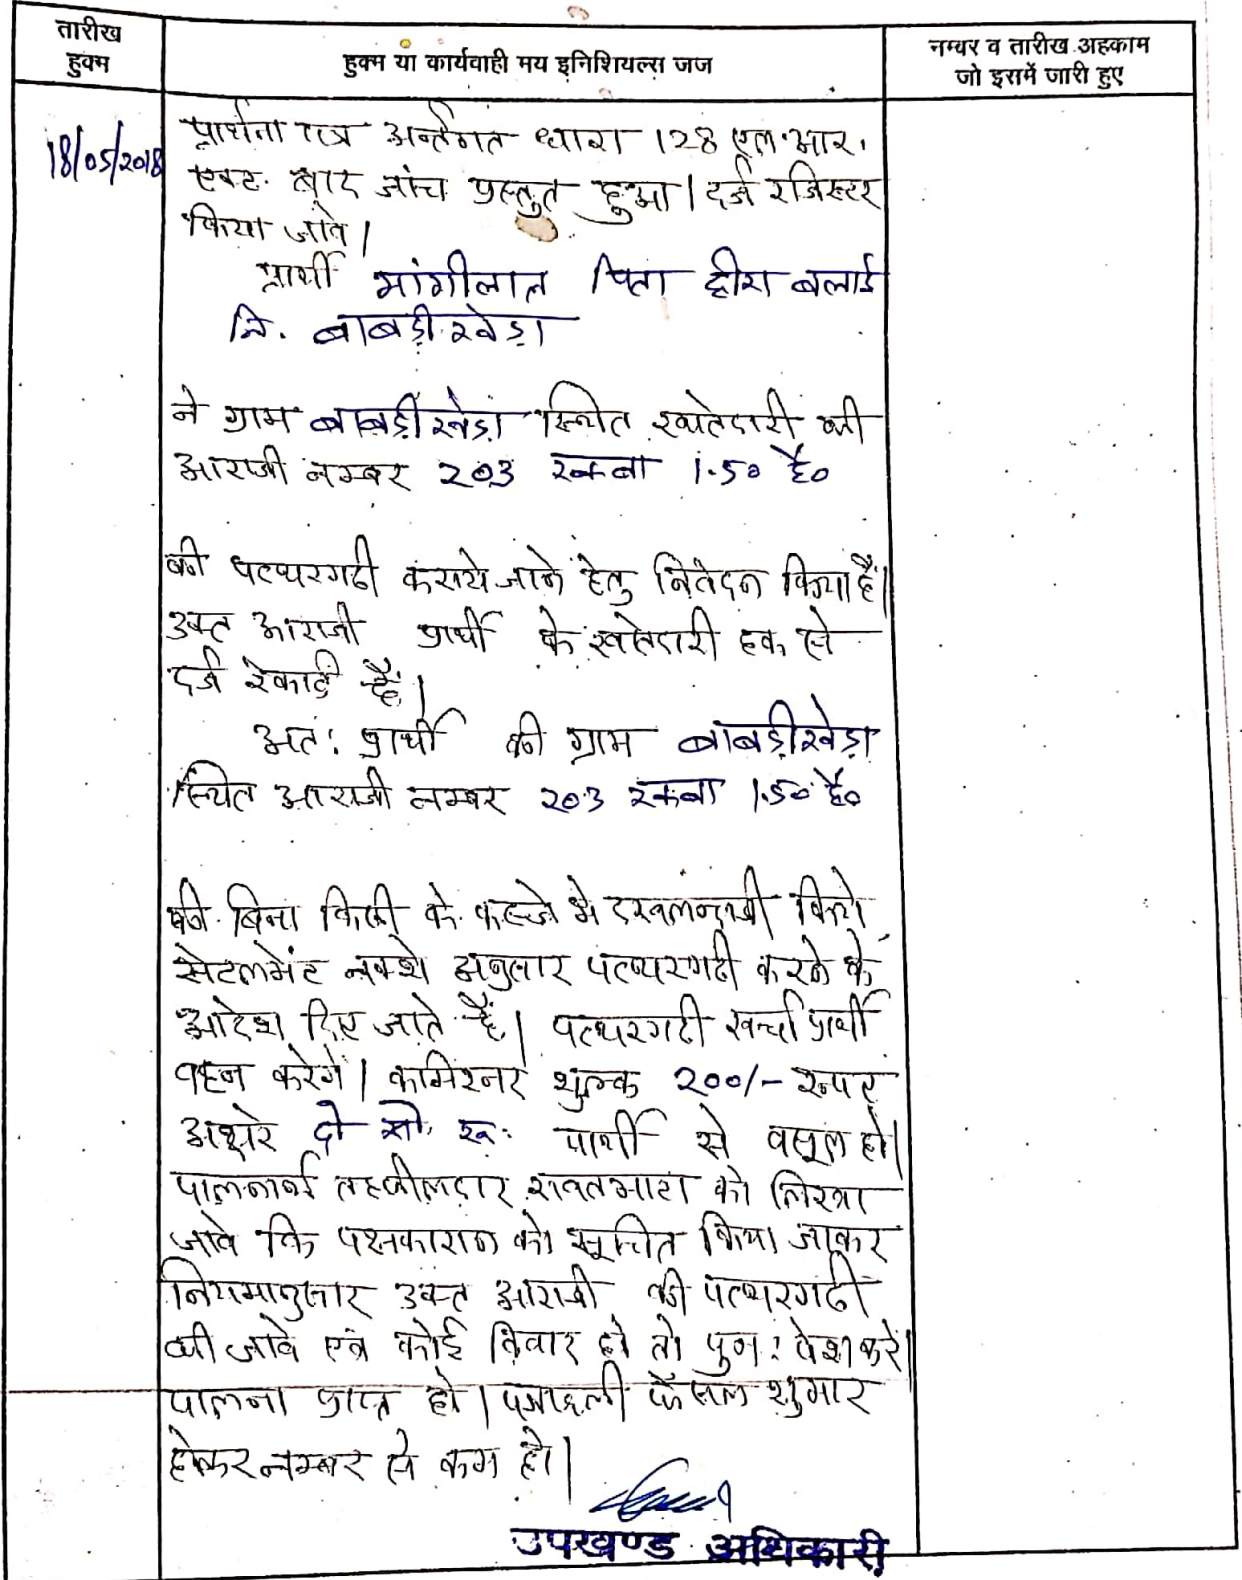 तारीख
हुक्म
हुक्म या कार्यवाही मय इनिशियल्स जज
नम्बर व तारीख अहकाम
जो इसमें जारी हुए
18/05/2018
प्रार्थना पत्र अर्न्तगत धारा 128 एल.आर.
एक्ट. बाद जांच प्रस्तुत हुआ। दर्ज रजिस्टर
किया जावे।
प्रार्थी मांगीलाल पिता हीरा बलाई
नि. बाबड़ीखेड़ा
ने ग्राम बाबड़ीखेड़ा स्थित खातेदारी की
आराजी नम्बर 203 रकबा 1.50 है०
की पत्थरगढी कराये जाने हेतु निवेदन किया है।
उक्त आराजी प्रार्थी के खातेदारी हक से
दर्ज रेकार्ड है।
अतः प्रार्थी की ग्राम बाबड़ीखेड़ा
स्थित आराजी नम्बर 203 रकबा 1.50 है०
की बिना किसी के कब्जे मे दखलन्दाजी किये
सेटलमेंट नक्शे अनुसार पत्थरगढी करने के
आदेश दिए जाते है। पत्थरगढी खर्चा प्रार्थी
वहन करेगें। कमिश्नर शुल्क 200/- रूपए
अक्षरे दो सो रू. प्रार्थी से वसूल हो।
पालनार्थ तहसीलदार रावतभाटा को लिखा
जावे कि पक्षकारान को सूचित किया जाकर
नियमानुसार उक्त आराजी की पत्थरगढी
की जावे एवं कोई विवाद हो तो पुनः पेश करें।
पालना प्राप्त हो। पत्रावली फैसल शुमार
होकर नम्बर से कम हो।
उपखण्ड अधिकारी